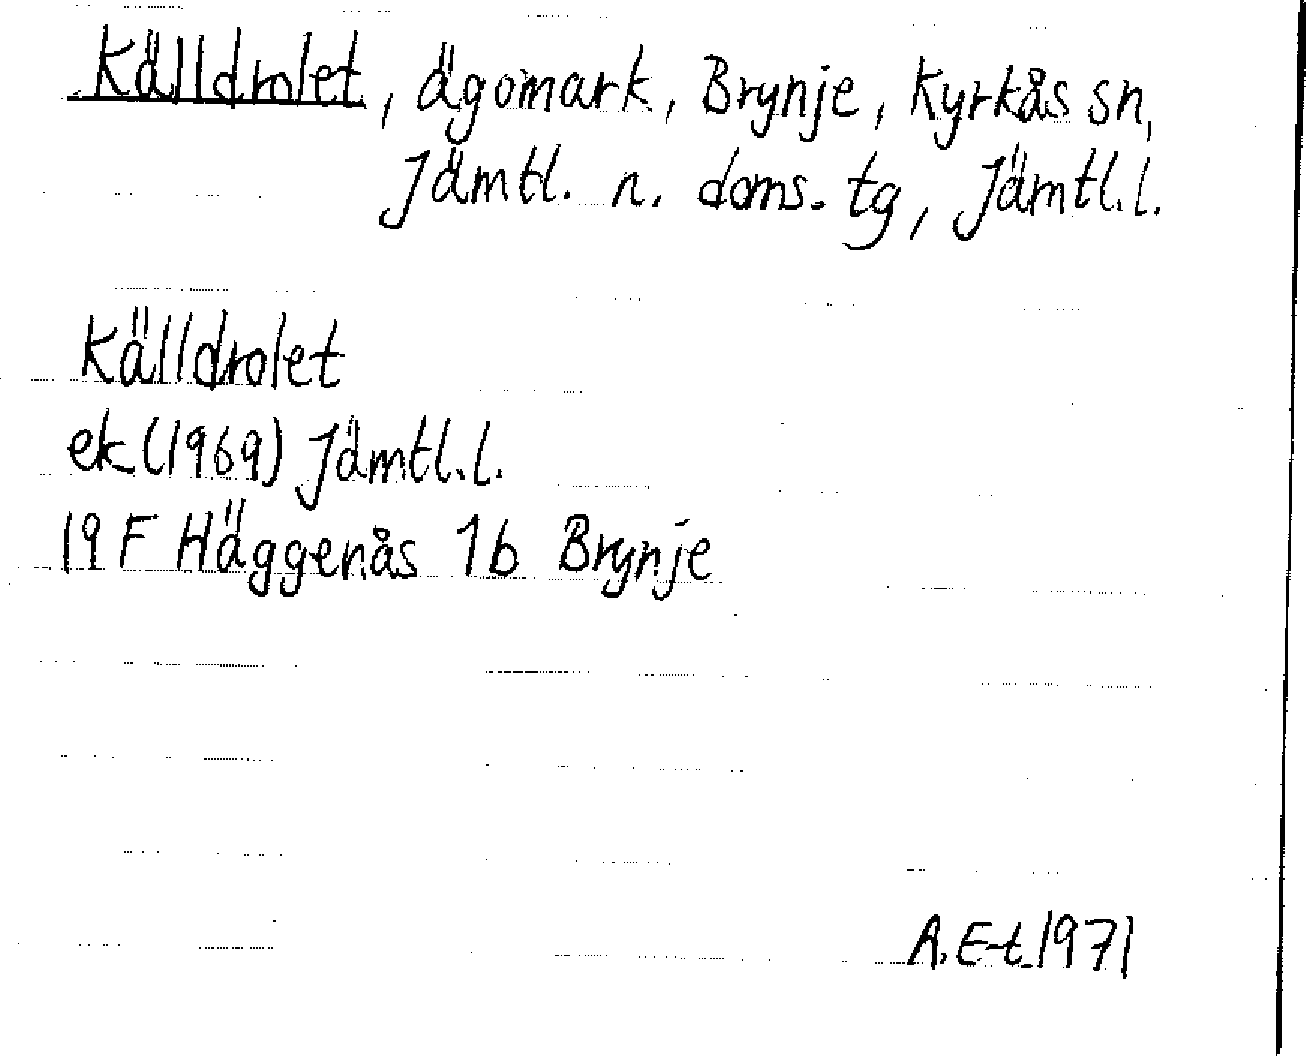 Källdrolet, ägomark, Brynje, Kyrkås sn,
Jämtl. n. doms. tg, Jämtl.l.
Källdrolet
ek (1969) Jämtl.l.
19 F Häggenås 1b Brynje
A. E-t 1971